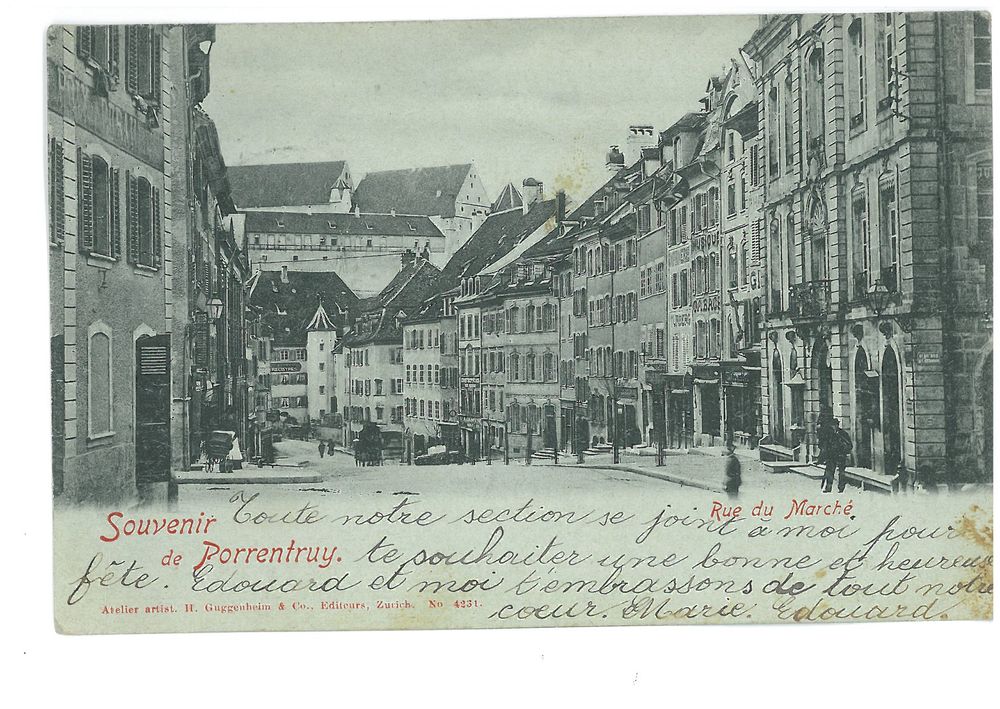 MUSIQUE
TABACS
Souvenir
de Porrentruy.
Rue du Marché
Toute notre section se joint à moi pour
te souhaiter une bonne et heureuse
fête. Edouard et moi t'embrassons de tout notre
coeur. Marie. Edouard.
Atelier artist. H. Guggenheim & Co., Editeurs, Zurich. No 4231.